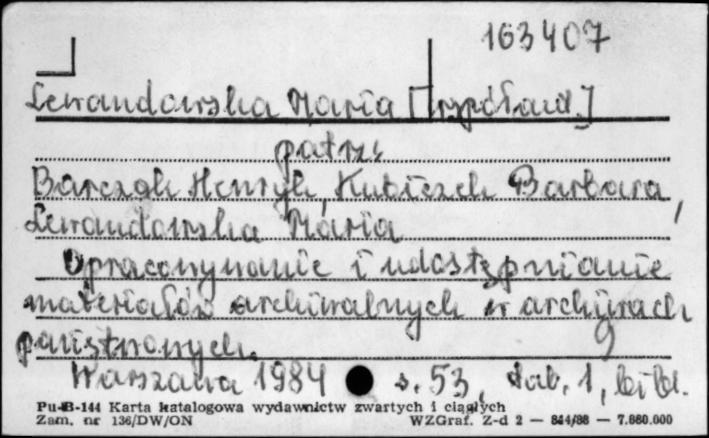 163407
Lewandowska Maria [współaut.]
patrz:
Barczak Henryk, Kubiczek Barbara,
Lewandowska Maria
Opracowywanie i udostępnianie
materiałów archiwalnych w archiwach
państwowych.
Warszawa 1984 s. 53, tab. 1, bibl.
Pu-B-144 Karta katalogowa wydawnictw zwartych i ciągłych
Zam. nr 136/DW/ON WZGraf. Z-d 2 — 844/88 — 7.880.000